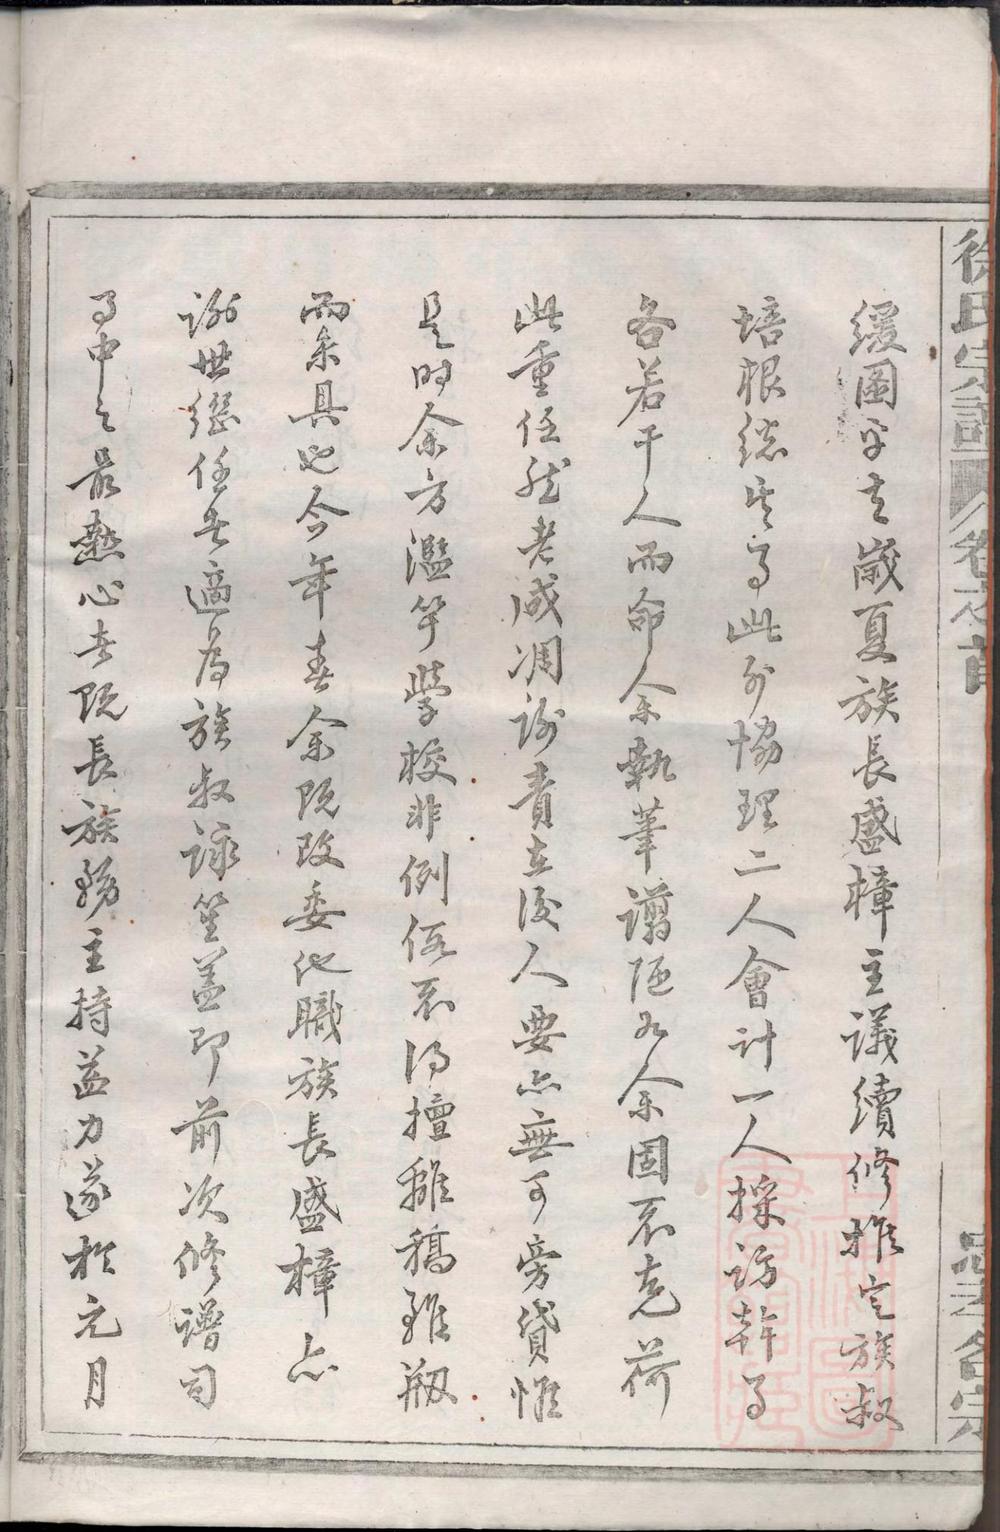 徐氏宗譜
卷之首
忠孝名宗
緩圖乎去歲夏族長盛樟主議續修推定族叔
培根總其事此外協理二人會計一人採訪幹事
各若干人而命余執筆譾陋如余固不克荷
此重任然老成凋謝責在後人要亦無可旁貸惟
是時余方濫竽學校非例假不得擅離稿雖剏
而未具也今年春余既改委他職族長盛樟亦
謝世繼任者適為族叔詠笙蓋即前次修譜司
事中之最熱心者既長族務主持益力遂於元月